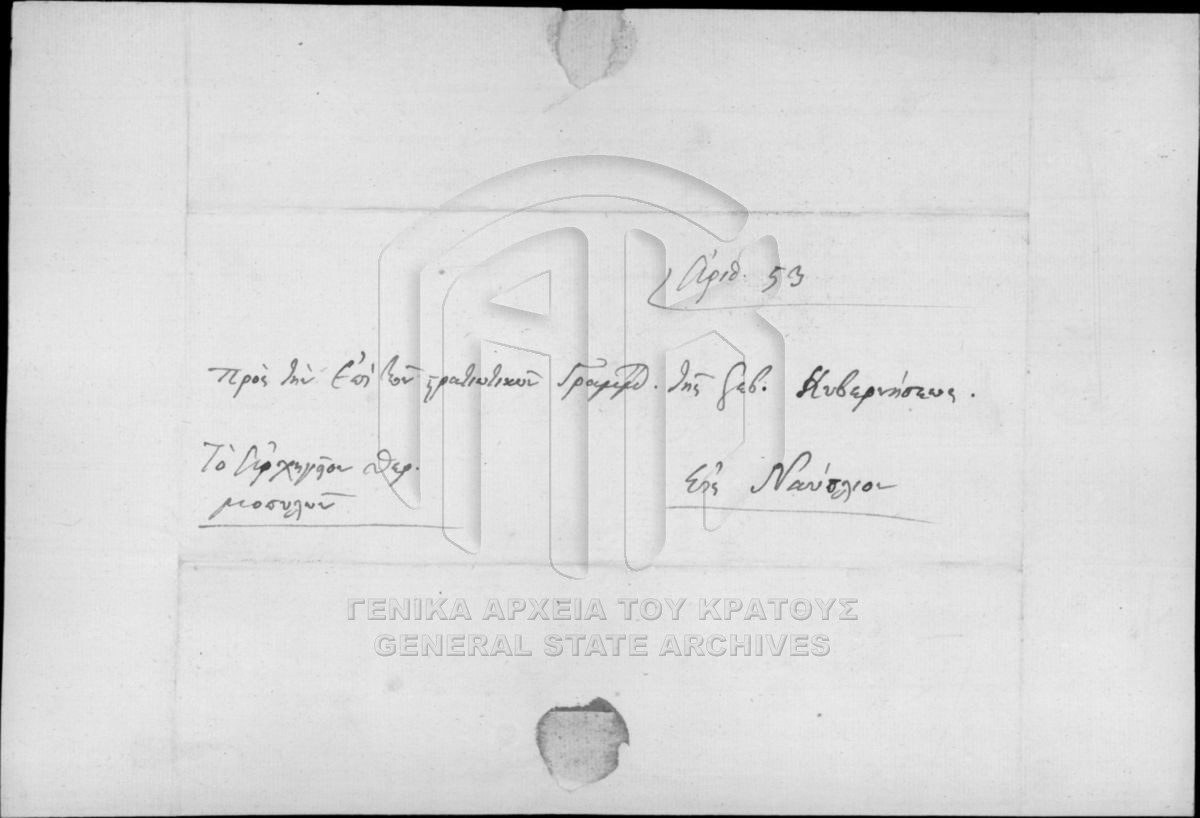 Ἀριθ. 53
Πρὸς τὴν ἐπὶ τῶν στρατιωτικῶν Γραμμτ. τῆς Σεβ. Κυβερνήσεως.
Τὸ Ἀρχηγεῖον Θερ-
μοπυλῶν
Εἰς Ναύπλιον
ΓΕΝΙΚΑ ΑΡΧΕΙΑ ΤΟΥ ΚΡΑΤΟΥΣ
GENERAL STATE ARCHIVES